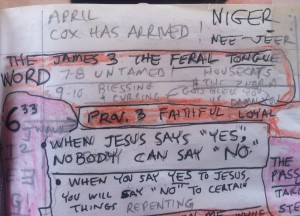 APRIL
COX HAS ARRIVED
NIGER
NEE-JEER
THE JAMES 3 THE FERAL TONGUE
WORD 7-8 UNTAMED HOUSECATS
9-10 BLESSING & CURSING
633
PROV. 3 FAITHFUL LOYAL
• WHEN JESUS SAYS "YES,"
NOBODY CAN SAY "NO."
• WHEN YOU SAY YES TO JESUS,
YOU WILL SAY "NO" TO CERTAIN
THINGS REPENTING
THE
PASS
TAR
STE